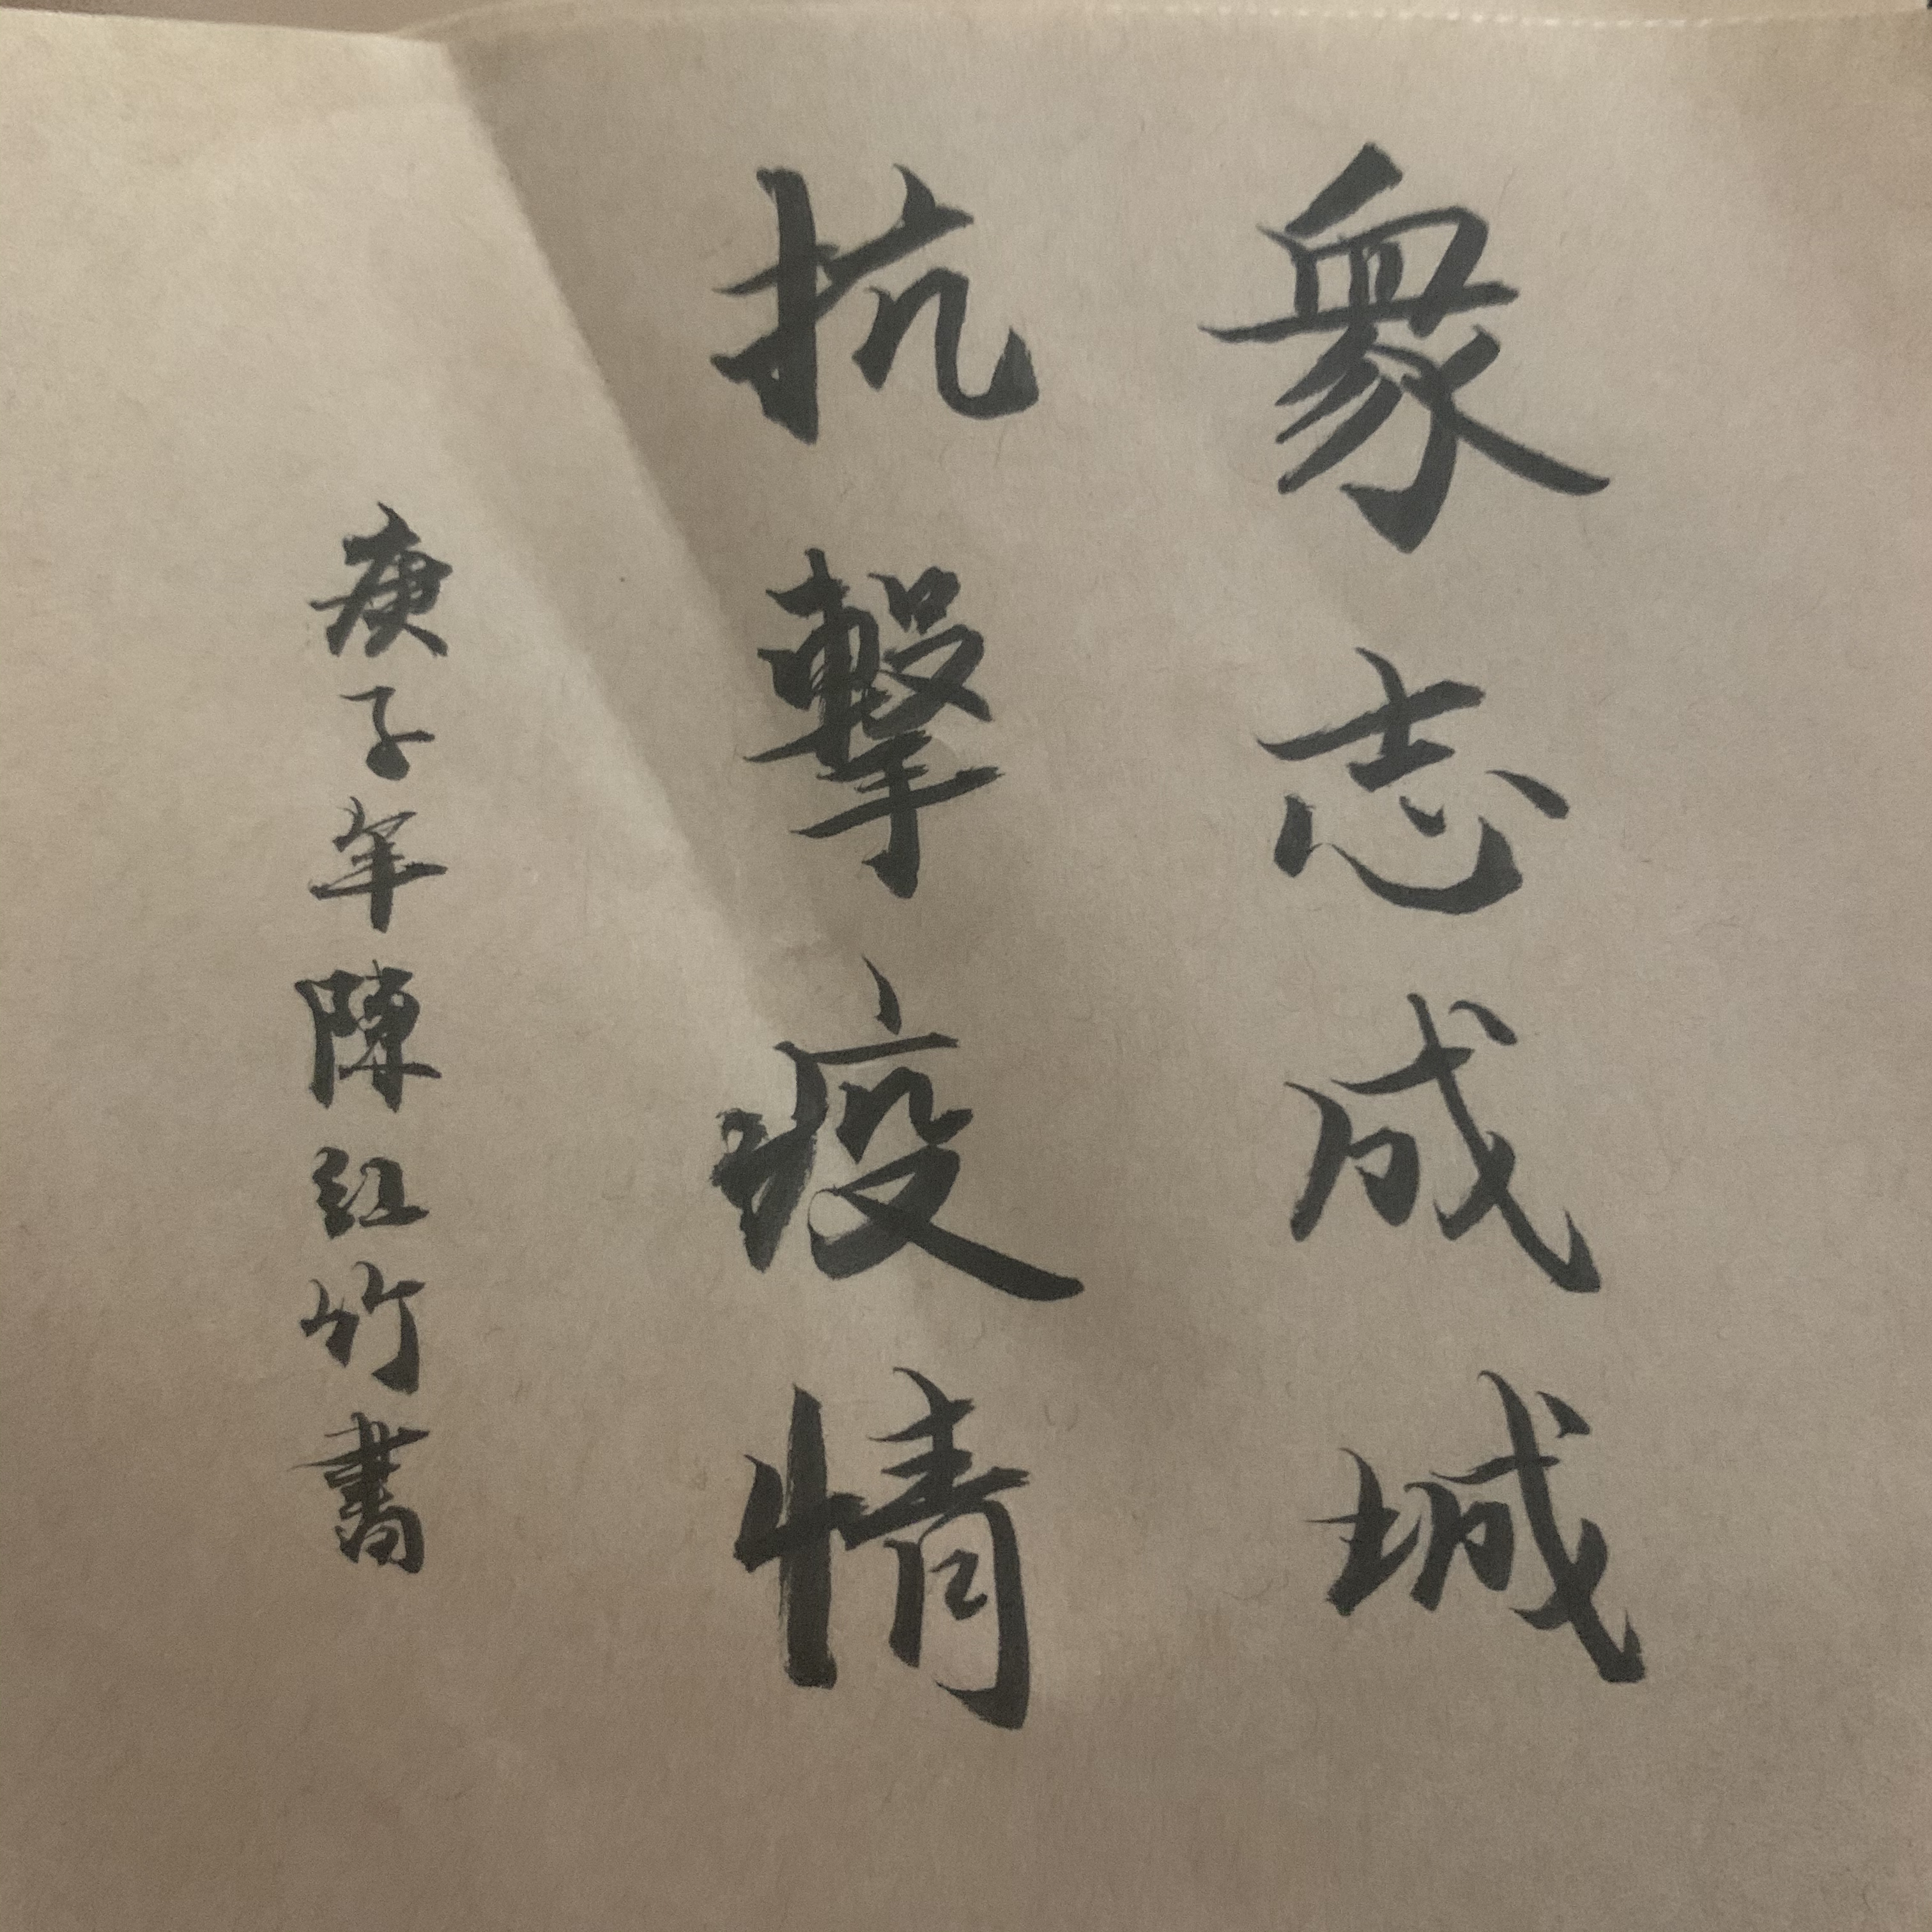 衆志成城
抗擊疫情
庚子年陳红竹書